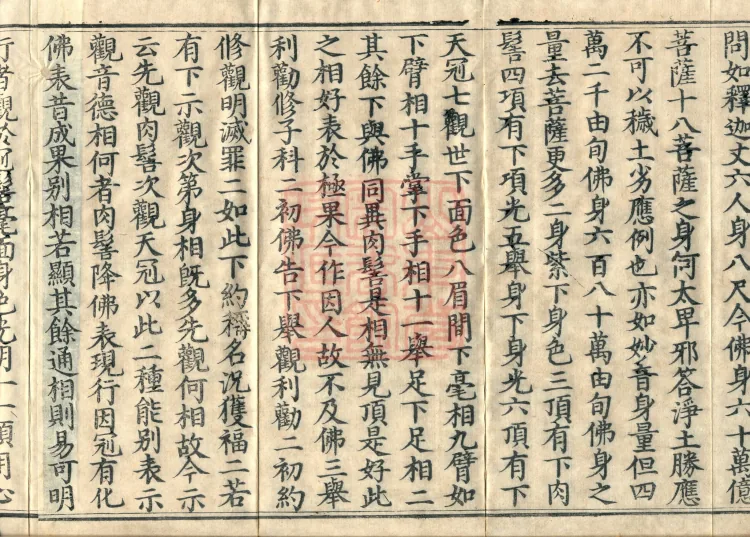 問如釋迦丈六人身八尺今佛身六十萬億
菩薩十八菩薩之身何太卑邪答淨土勝應
不可以穢土劣應例也亦如妙音身量但四
萬二千由旬佛身六百八十萬由旬佛身之
量去菩薩更多二身紫下身色三頂有下肉
髻四項有下項光五舉身下身光六頂有下
天冠七觀世下面色八眉間下毫相九臂如
下臂相十手掌下手相十一舉足下足相二
其餘下與佛同異肉髻是相無見頂是好此
之相好表於極果今作因人故不及佛三舉
利勸修子科二初佛告下舉觀利勸二初約
修觀明滅罪二如此下約稱名況獲福二若
有下示觀次第身相既多先觀何相故今示
云先觀肉髻次觀天冠以此二種能別表示
觀音德相何者肉髻降佛表現行因冠有化
佛表昔成果別相若顯其餘通相則易可明
行者觀於肉髻毫面身色光明十一須用心